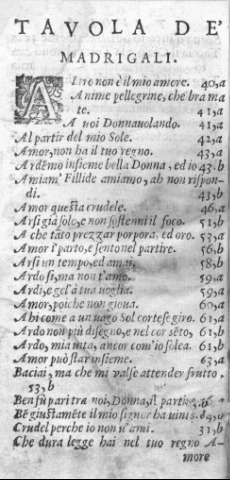 TAVOLA DE'
MADRIGALI.
Altro non è il mio amore. 40,a
Anime pellegrine, che bramate.
te. 41,a
A voi Donna volando. 41,a
Al partir del mio Sole. 42,a
Amor, non ha il tuo regno. 43,a
Ardemo insieme bella Donna, ed io 43.b
Amiam' Fillide amiamo, ah non rispon-
di. 43,b
Amor questa crudele. 46,a
Arsi già solo, e non sostenni il foco. 51,b
A che tato prezzar porpora, ed oro. 53,a
Amor i' parto, e sento nel partire. 56,b
Arsi un tempo, ed amai, 58,b
Ardo si, ma non t'amo. 59,a
Ardi, e gel'à tua voglia. 59,a
Amor, poiche non gioua. 60,a
Ahi come a un vago Sol cortese giro. 61,a
Ardo non più disegno, e nel cor sẽto, 61,b
Ardo, mia vita, ancor com'io solea. 61,b
Amor può star insieme. 63,a
Baciai, ma che mi valse attender frutto.
53,b
Ben fù pari tra noi, Donna, il partire.
Bẽ giustamẽte il mio signor ha
Crudel perche io non v'ami. 31,b
Che dura legge hai nel tuo regno A-
more